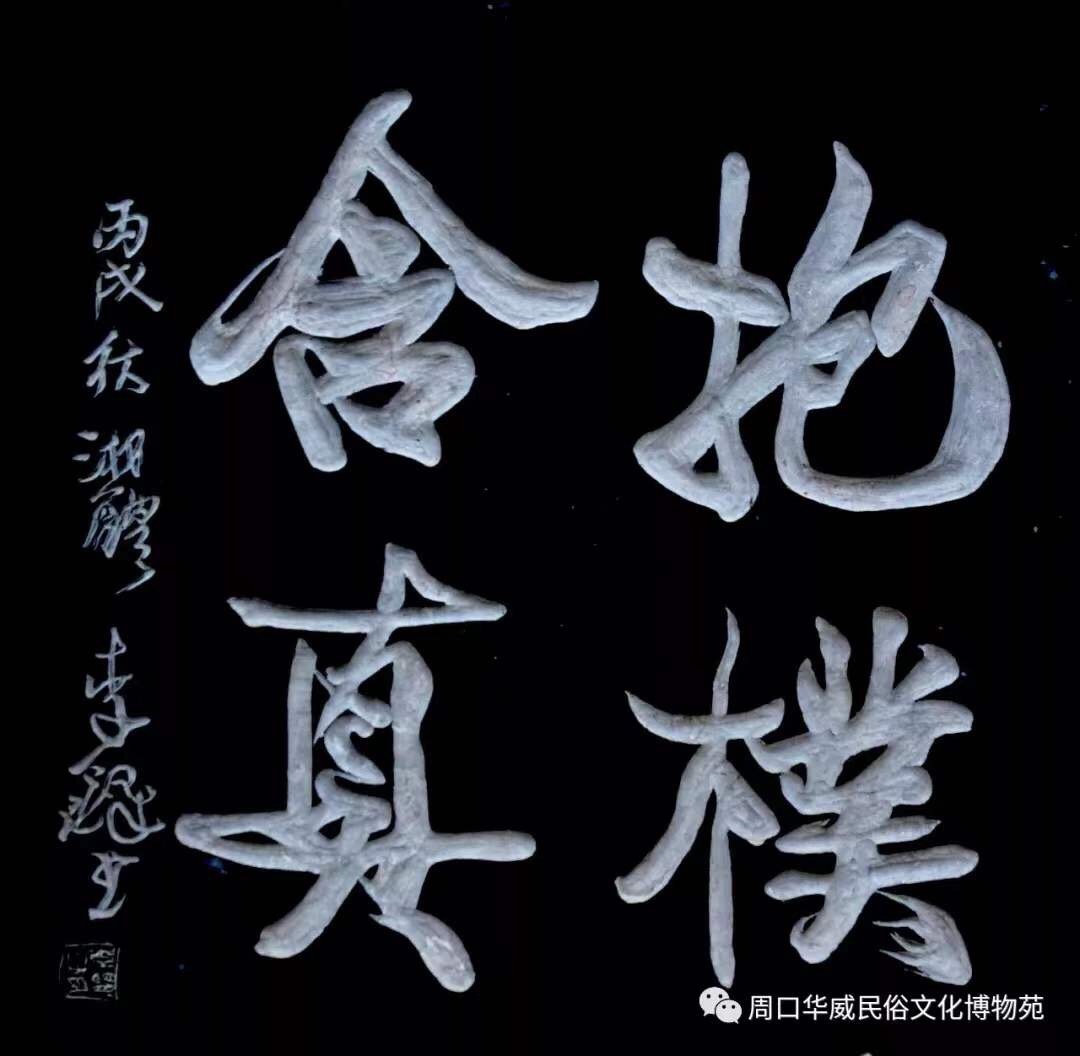 抱樸
含真
丙戌秋湘醴李铎书
周口华威民俗文化博物苑